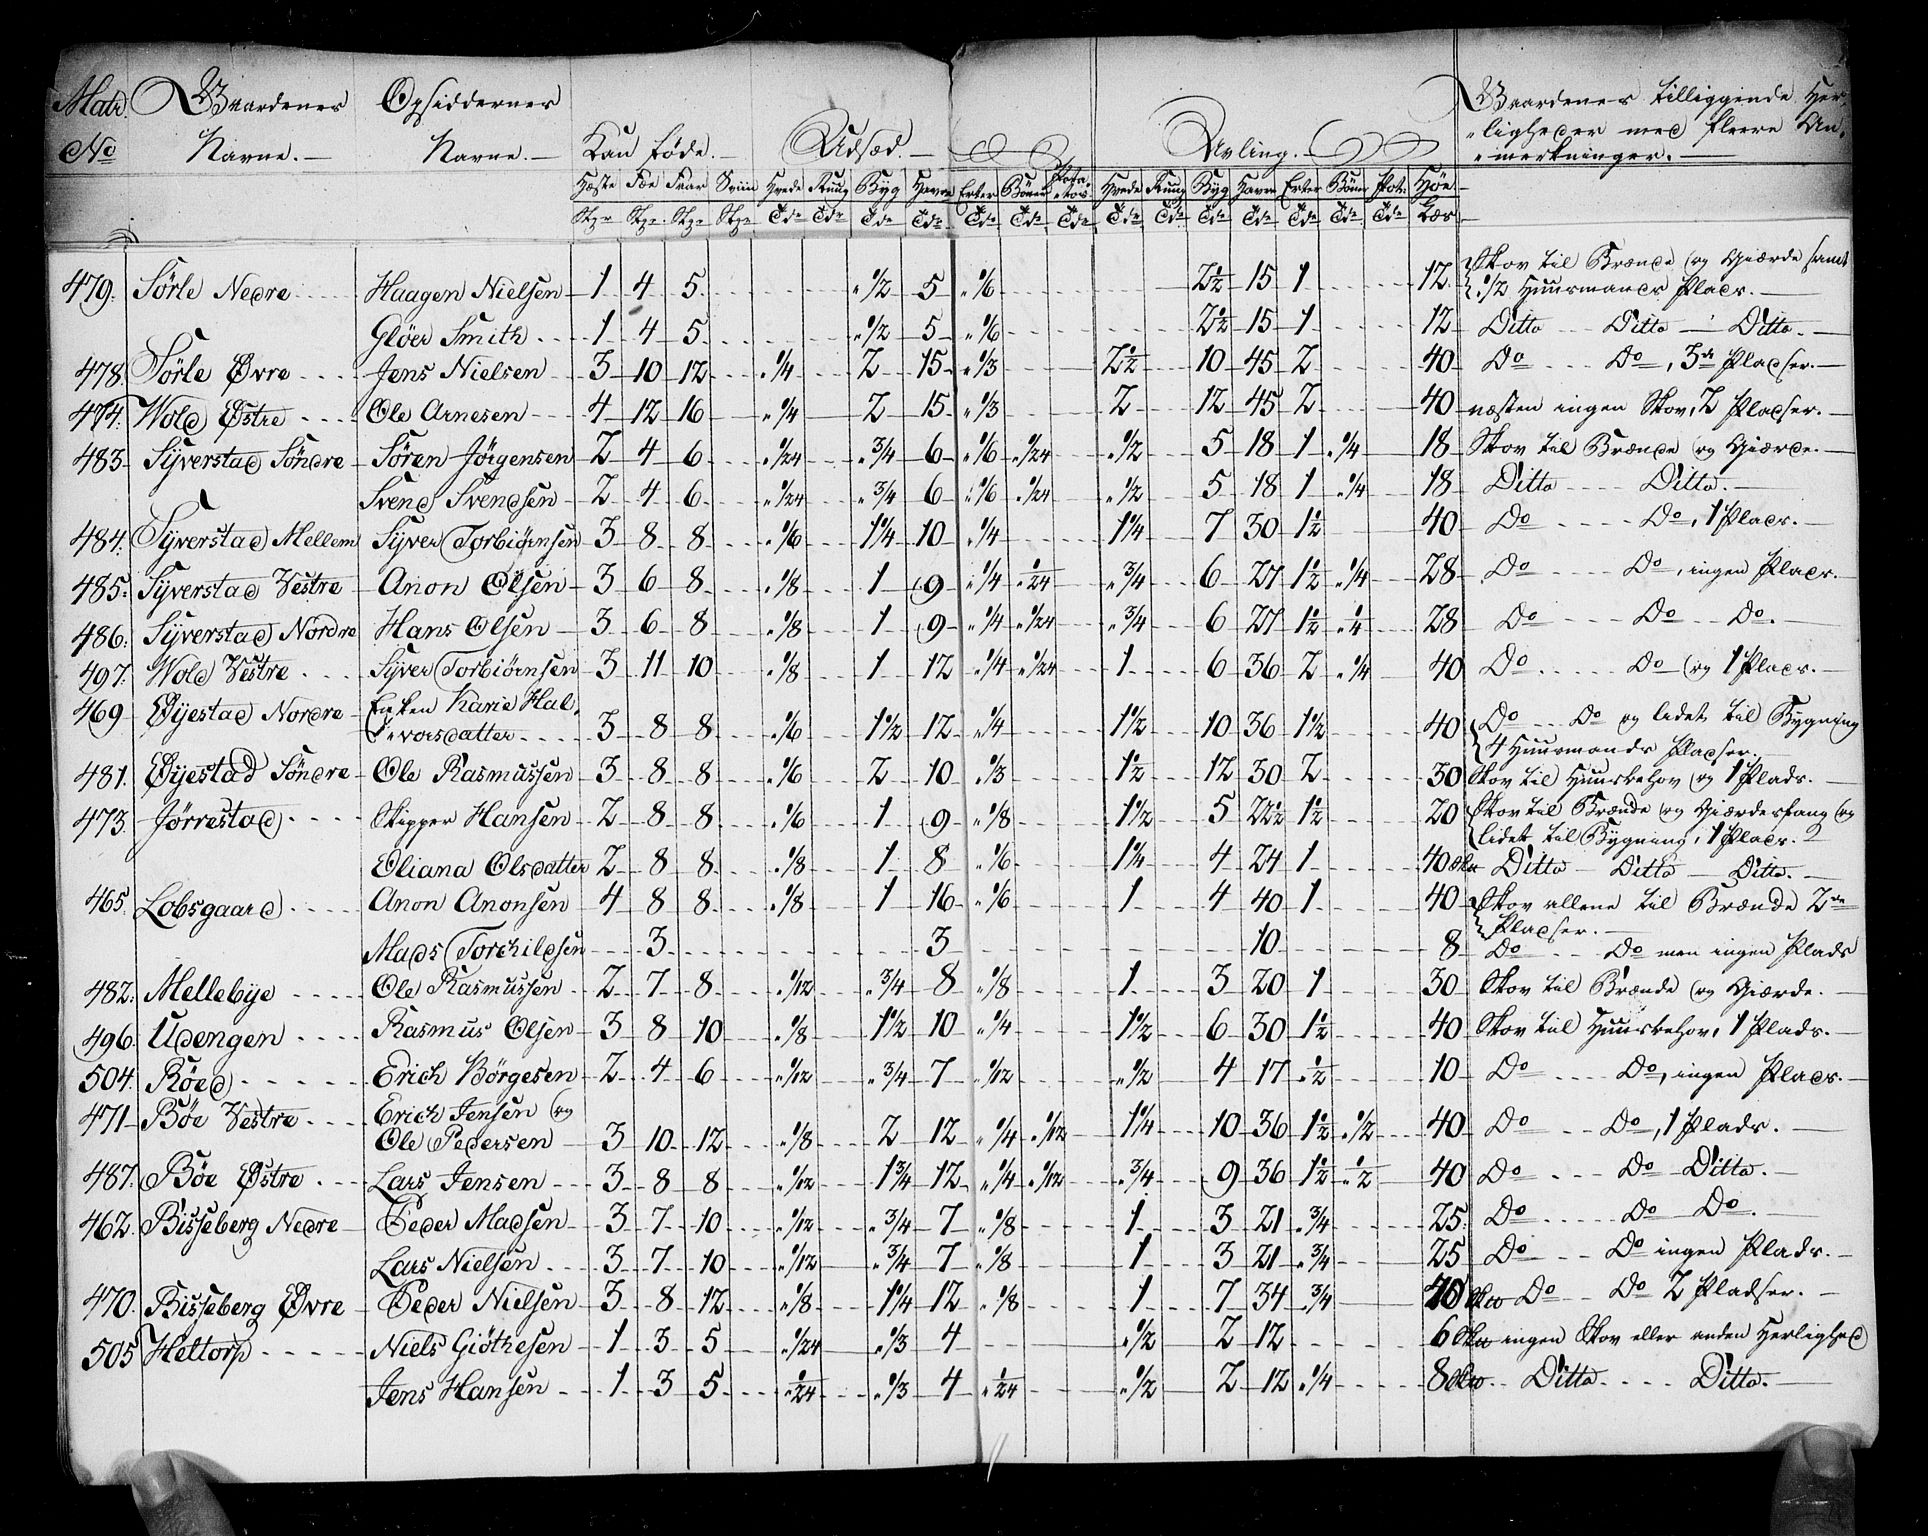 Matr. Gaardenes Opsiddernes Gaardenes tilliggende Her-
No Navne. Navne. Kan föde. Udsæd. Avling. ligheder med fleere An-
mærkninger.
Hæste Fæe Faar Sviin Hvede Ruug Byg Havre Erter Bönner Potatos Hvede Ruug Byg Havre Erter Bönner Pot: Höe
Stkr Stkr Stkr Stkr Tdr Tdr Tdr Tdr Tdr Tdr Tdr Tdr Tdr Tdr Tdr Tdr Tdr Tdr Læs
479. Sörle Nedre Haagen Nielsen 1 4 5 1/2 5 1/6 2 1/2 15 1 12 Skov til Brænde og Giærde samt
1/2 Huusmands Plads.
Glöer Smith 1 4 5 1/2 5 1/6 2 1/2 15 1 12 Ditto Ditto Ditto.
478. Sörle Øvre Jens Nielsen 3 10 12 1/4 2 15 1/3 2 1/2 10 45 2 40 Do Do, 3de Pladser.
474. Wold Østre Ole Arnesen 4 12 16 1/4 2 15 1/3 2 12 45 2 40 næsten ingen Skov, 2 Pladser.
483 Syverstad Söndre Sören Jörgensen 2 4 6 1/24 3/4 6 1/6 1/24 1/2 5 18 1 1/4 18 Skov til Brænde og Giærde.
Svend Svendsen 2 4 6 1/24 3/4 6 1/6 1/24 1/2 5 18 1 1/4 18 Ditto Ditto.
484. Syverstad Mellem Syver Torbiörnsen 3 8 8 1/6 1 1/4 10 1/4 1 1/4 7 30 1 1/2 40 Do Do, 1 Plads.
485. Syverstad Vestre Anon Olsen 3 6 8 1/8 1 9 1/4 1/24 3/4 6 27 1 1/2 1/4 28 Do Do, ingen Plads.
486. Syverstad Nordre Hans Olsen 3 6 8 1/8 1 9 1/4 1/24 3/4 6 27 1 1/2 1/4 28 Do Do Do.
497. Wold Vestre Syver Torbiörnsen 3 11 10 1/8 1 12 1/4 1/24 1 6 36 2 1/4 40 Do Do og 1 Plads.
469 Øyestad Nordre Enken Karie Hal-
vorsdatter 3 8 8 1/6 1 1/2 12 1/4 1 1/2 10 36 1 1/2 40 Do Do og lidet til Bygning
4 Huusmands Pladser.
481. Øyestad Söndre Ole Rasmussen 3 8 8 1/6 2 10 1/3 1 1/2 12 30 2 30 Skov til Huusbehov og 1 Plads.
473. Jörrestad Skipper Hansen 2 8 8 1/6 1 9 1/8 1 1/2 5 22 1/2 1 1/2 20 Skov til Brænde og Giærdesfang og
lidet til Bygning, 1 Plads.
Eliana Olsdatter 2 8 8 1/8 1 8 1/6 1 1/4 4 24 1 40 Ditto Ditto Ditto.
465. Lobsgaard Anon Anonsen 4 8 8 1/8 1 16 1/6 1 4 40 1 40 Skov allene til Brænde 2de
Pladser.
Mads Torchildsen 3 3 10 8 Do Do men ingen Plads
482. Mellebye Ole Rasmussen 2 7 8 1/12 3/4 8 1/8 1 3 20 1 30 Skov til Brænde og Giærde.
496. Udengen Rasmus Olsen 3 8 10 1/8 1 1/2 10 1/4 1 1/2 6 30 1 1/2 40 Skov til Huusbehov, 1 Plads.
504. Röed Erich Börgesen 2 4 6 1/12 3/4 7 1/12 1/2 4 17 1/2 10 Do Do, ingen Plads.
471 Böe Vestre Erich Jensen og
Ole Pedersen 3 10 12 1/8 2 12 1/4 1/12 1 1/4 10 36 1 1/2 1/2 40 Do Do, 1 Plads.
487. Böe Østre Lars Jensen 3 8 8 1/12 1 3/4 12 1/4 1/12 3/4 9 36 1 1/2 1/2 40 Do Do Ditto.
462. Bisseberg Nedre Peder Madsen 3 7 10 1/12 3/4 7 1/8 1 3 21 3/4 25 Do Do Do.
Lars Nielsen 3 7 10 1/12 3/4 7 1/8 1 3 21 3/4 25 Do Do ingen Plads.
470. Bisseberg Øvre Peder Nielsen 3 8 12 1/8 1 1/4 12 1/8 1 7 34 3/4 Do Do 2 Pladser.
505 Heltorp Niels Giöthesen 1 3 5 1/24 1/3 4 1/2 2 12 6 ingen Skov eller anden Herlighed
Jens Hansen 1 3 5 1/24 1/3 4 1/24 1/2 2 12 1/4 8 Ditto Ditto.